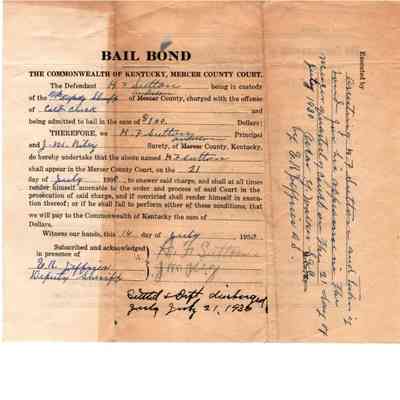 BAIL BOND
THE COMMONWEALTH OF KENTUCKY, MERCER COUNTY COURT.
The Defendant H F Sutton being in custody
of the Deputy Sheriff of Mercer County, charged with the offense
of Cold Check and
being admitted to bail in the sum of $100. Dollars:
THEREFORE, we H F Sutton Principal
and J. M. Riley Surety, of Mercer County, Kentucky,
do hereby undertake that the above named H F Sutton
shall appear in the Mercer County Court, on the 21
day of July 1930 to answer said charge, and shall at all times
render himself amenable to the order and process of said Court in the
prosecution of said charge, and if convicted shall render himself in execu-
tion thereof; or if he shall fail to perform either of these conditions, that
we will pay to the Commonwealth of Kentucky the sum of
Dollars.
Witness our hands, this 14 day of July 1930.
Subscribed and acknowledged
in presence of
E. R. Jeffries
Deputy Sheriff
H F Sutton
J M Riley
Settled & Deft. discharged
July 21, 1930
Executed by
Arresting H. F. Sutton and taking
bond for his appearance in the
Mercer Quarterly Court on the 21 day of
July 1930
by E R Jeffries D. S.